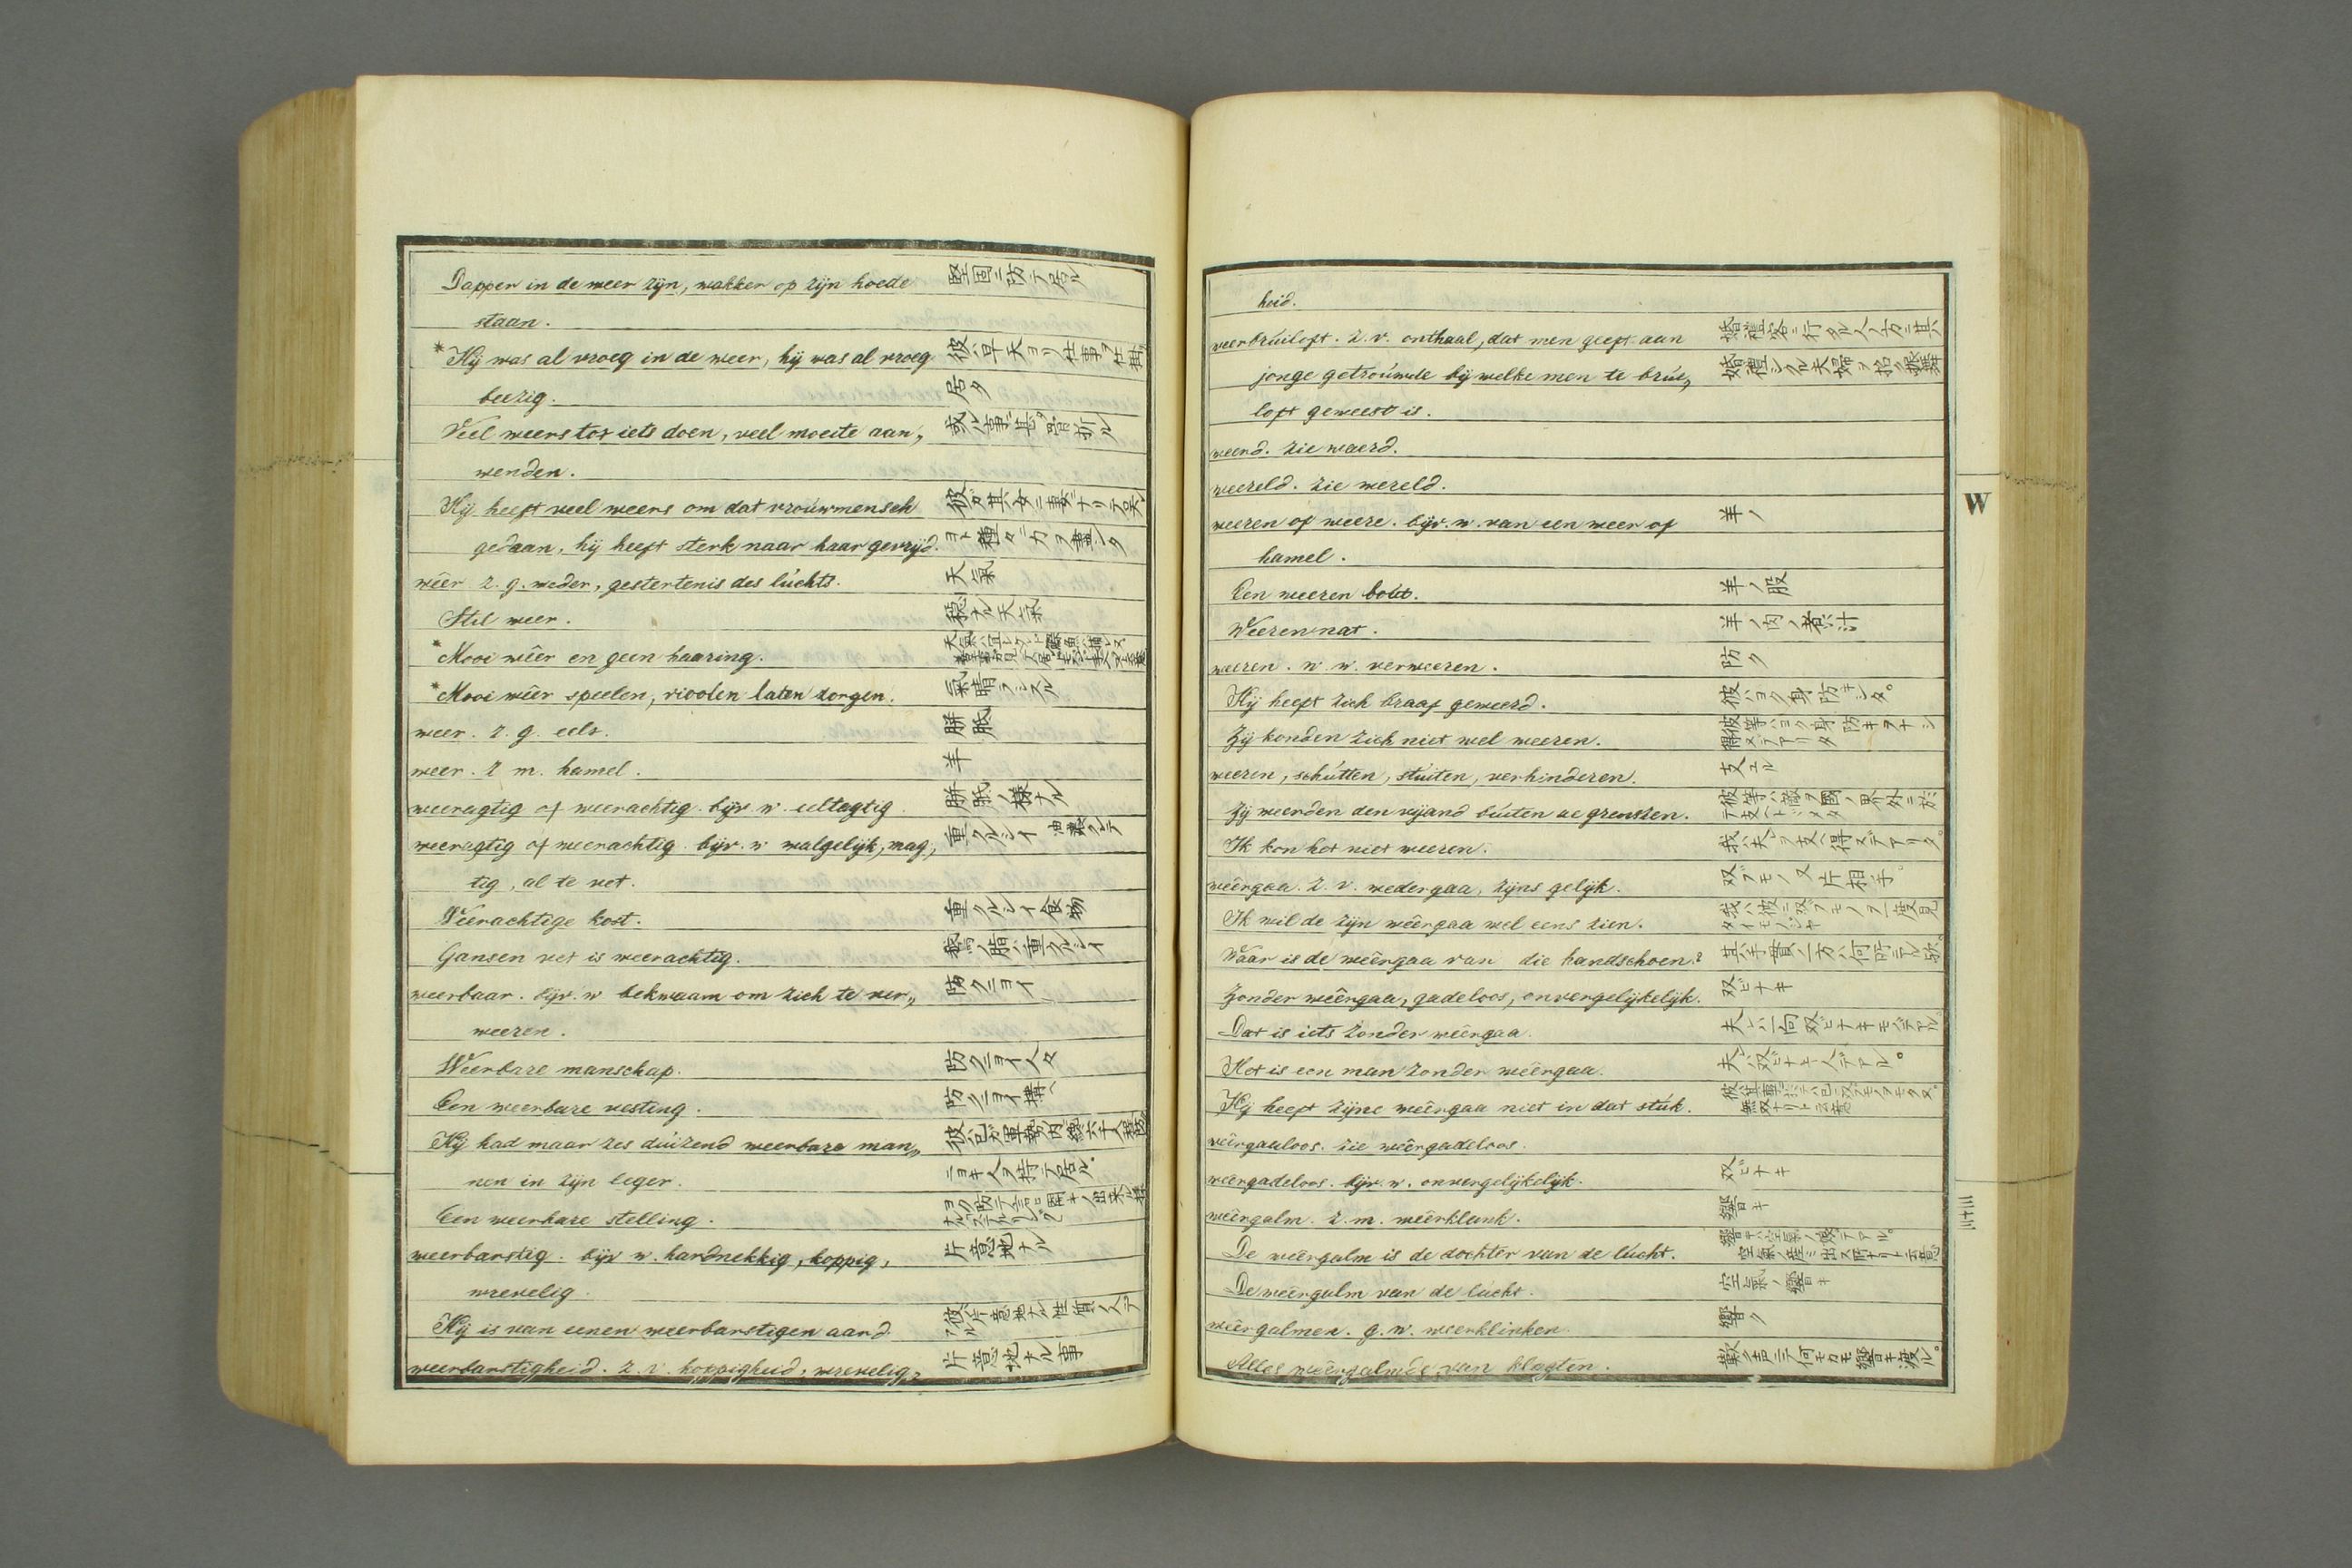 Dapper in de weer zijn, wakker op zijn hoede 堅固ニ防テ居ル
staan.
*Hij was al vroeg in de weer, hij was al vroeg 彼ハ早天ヨリ仕事ヲ仕掛
beezig. 居タ
Veel weers tot iets doen, veel moeite aan„ 或ル事ニ甚ダ骨折ル
wenden.
Hij heeft veel weers om dat vroúwmensch
gedaan, hij heeft sterk naar haar gevrijd.
wêer z. g. weder, gestertenis des lúchts. 天氣
Stil weer. 穏ナル天氣
*Mooi wêer en geen haaring.
*Mooi wêer speelen, rioolen laten zorgen.
weer. z. g. eelt. 胼胝
weer. z. m. hamel. 羊
weeragtig of weerachtig. bijv. w. eeltagtig 胼胝ノ様ナル
weeragtig of weerachtig. bijv. w. walgelijk, mag, 重クルシイ
tig, al te vet.
Weerachtige kost. 重クルシイ食物
Gansen vet is weerachtig. 鵞ノ脂ハ重クルシイ
weerbaar. bijv. w. bekwaam om zich te ver„ 防クニヨイ
weeren.
Weerbare manschap. 防クニヨイ人々
Een weerbare vesting. 防クニヨイ構ヘ
Hij had maar zes dúizend weerbare man„
nen in zijn leger. ニヨキ人ヲ持テ居ル。
Een weerbare stelling.
weerbarstig. bijv. w. hardnekkig, koppig, 片意地ナル
wrevelig.
Hij is van eenen weerbarstigen aard 彼ハ片意地ナル性質ノ人デアル
weerbarstigheid. z. v. koppigheid, wrevelig„ 片意地ナル事
heid.
weerbrúiloft. z. v. onthaal, dat men geeft aan
jonge getroúwde bij welke men te brúi„
loft geweest is.
weerd. zie waerd.
weereld. zie wereld.
W
weeren of weere. bijv. w. van een weer of 羊ノ
hamel.
Een weeren boút. 羊ノ股
Weeren nat. 羊ノ肉ノ煮汁
weeren. w. w. verweeren. 防ク
Hij heeft zich braaf geweerd. 彼ハヨク身ヲ防キシタ。
Zij konden zich niet wel weeren.
weeren, schútten, stúiten, verhinderen. 支ユル
Zij weerden den vijand búiten de grenszen.
Ik kon het niet weeren. 我ハ夫ヲ支ヘ得ズデアリタ。
weêrgaa. z. v. wedergaa, zijns gelijk. 双ブモノ又片相手。
Ik wil de zijn weêrgaa wel eens zien.
Waar is de weêrgaa van die handschoen?
Zonder weêrgaa, gadeloos, onvergelijkelijk. 双ビナキ
Dat is iets zonder weêrgaa.
Het is een man zonder weêrgaa. 夫ハ双ビナキ人デアル。
Hij heeft zijne weêrgaa niet in dat stúk.
weêrgaaloos. zie weêrgadeloos.
weêrgadeloos. bijv. w. onvergelijkelijk. 双ビナキ
weêrgalm. z. m. weêrklank. 響キ
De weêrgalm is de dochter van de lúcht. 響キハ空氣ノ娘デアル。
De weêrgalm van de lúcht. 空氣ノ響キ
weêrgalmen. g. w. weerklinken. 響ク
Alles weêrgalmde van klagten. 歎ク声ニテ何モカモ響キ渡ル。